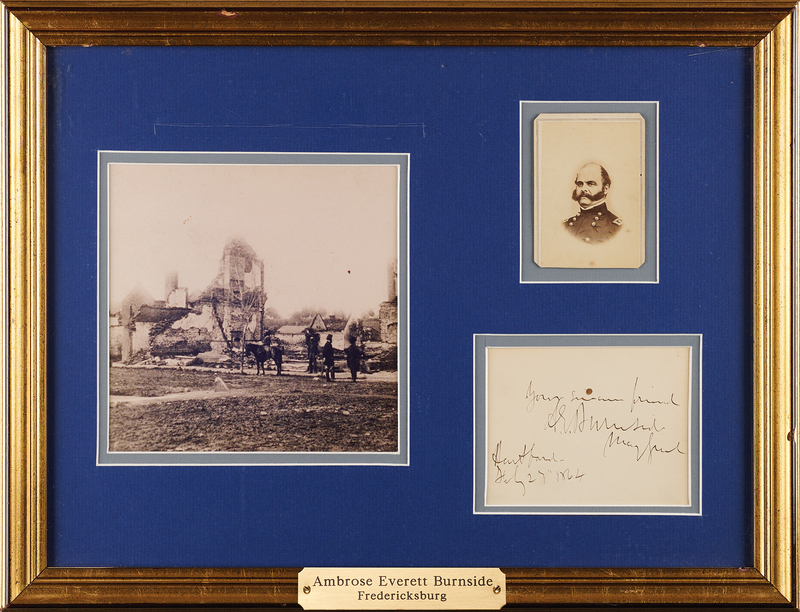 Your sincere friend
A E Burnside
Maj Genl
Hartford
Feby 27th 1864
Ambrose Everett Burnside
Fredericksburg